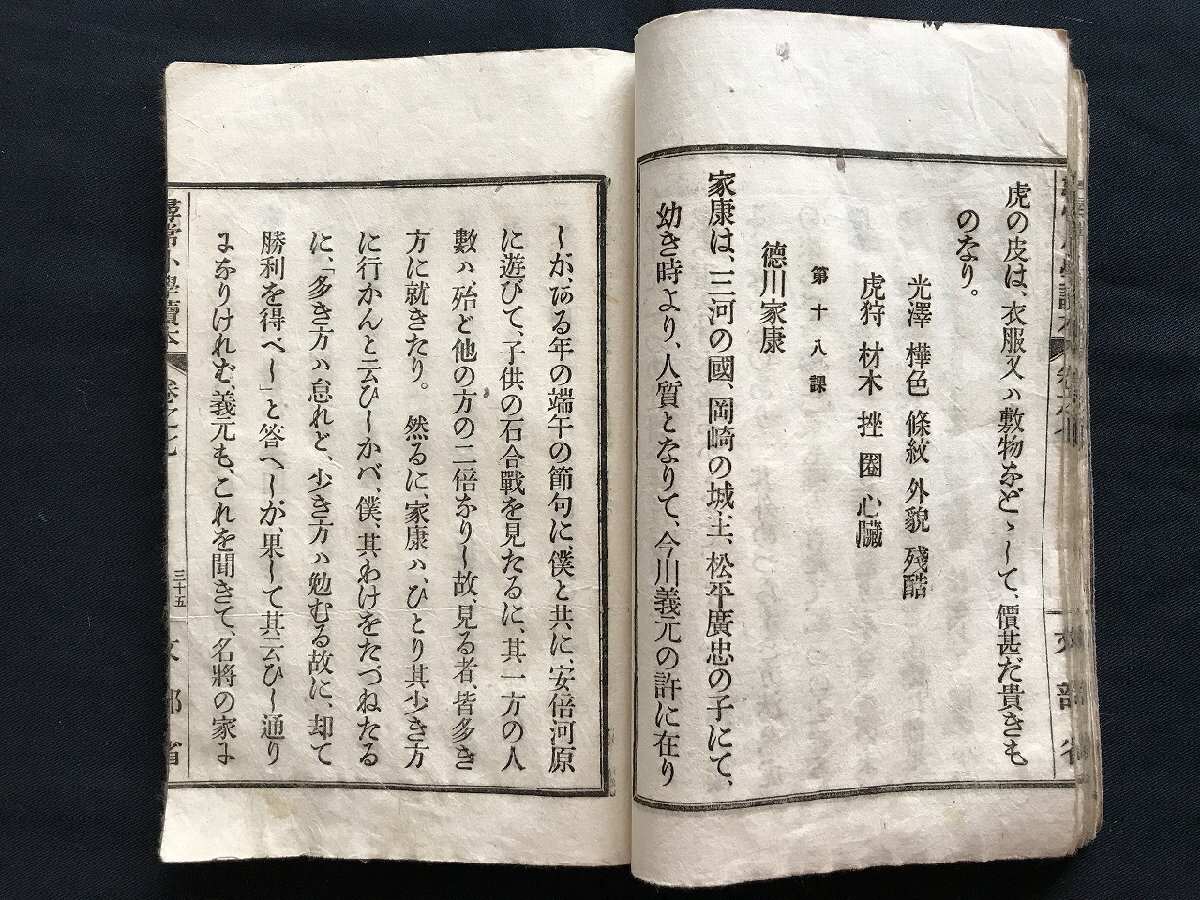 虎の皮は、衣服又ハ敷物などゝして、價甚だ貴きも
のなり。
光澤 樺色 條紋 外貌 殘酷
虎狩 材木 挫 圈 心臟
第十八課
德川家康
家康は、三河の國、岡崎の城主、松平廣忠の子にて、
幼き時より、人質となりて、今川義元の許に在り
しが、ある年の端午の節句に、僕と共に、安倍河原
に遊びて、子供の石合戰を見たるに、其一方の人
數ハ殆ど他の方の二倍なりし故、見る者、皆多き
方に就きたり。然るに、家康ハ、ひとり其少き方
に行かんと云ひしかバ、僕、其わけをたづねたる
に、「多き方ハ怠れど、少き方ハ勉むる故に、却て
勝利を得べし」と答へしが、果して其云ひし通り
になりけれバ、義元も、これを聞きて、名將の家に
尋常小學讀本
卷之七
三十五
文部省